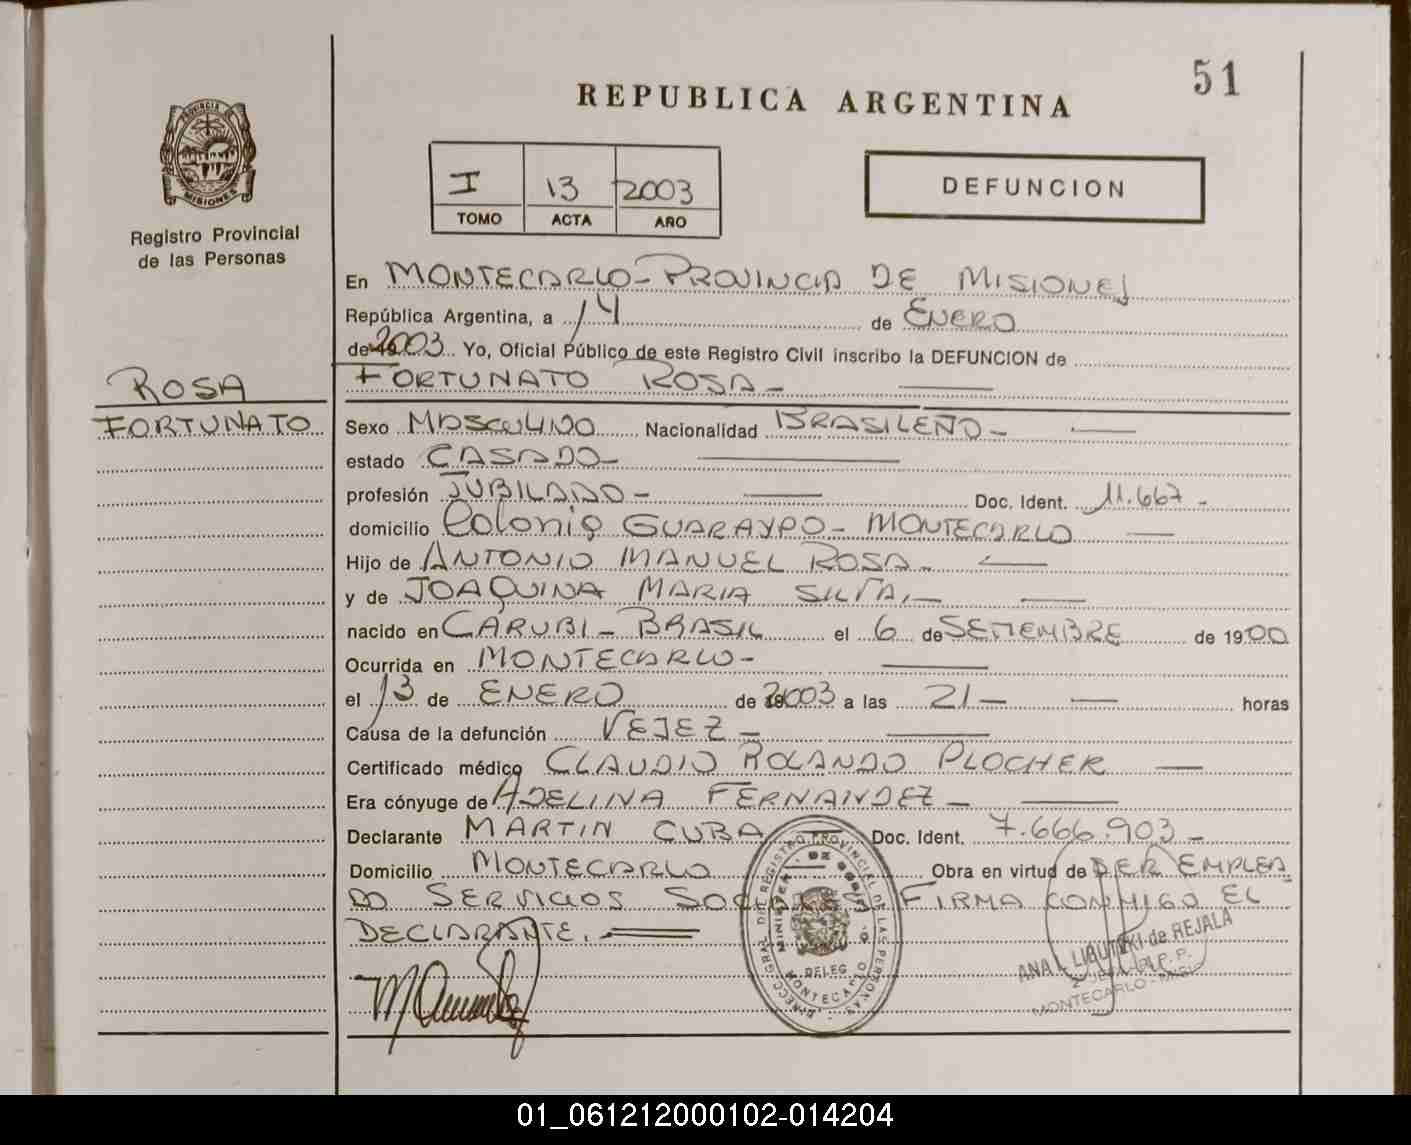 51
REPUBLICA ARGENTINA
I 13 2003
TOMO ACTA AÑO
DEFUNCION
PROVINCIA DE
MISIONES
Registro Provincial
de las Personas
En MONTECARLO - PROVINCIA DE MISIONES
República Argentina, a 14 de ENERO
de 2003 Yo, Oficial Público de este Registro Civil inscribo la DEFUNCION de
FORTUNATO ROSA -
ROSA
FORTUNATO
Sexo MASCULINO Nacionalidad BRASILEÑO -
estado CASADO -
profesión JUBILADO - Doc. Ident. 11.667 -
domicilio Colonia GUARAYPO - MONTECARLO
Hijo de ANTONIO MANUEL ROSA -
y de JOAQUINA MARIA SILVA, -
nacido en CARUBI - BRASIL el 6 de SETIEMBRE de 1900
Ocurrida en MONTECARLO -
el 13 de ENERO de 2003 a las 21 - horas
Causa de la defunción VEJEZ -
Certificado médico CLAUDIO ROLANDO PLOCHER
Era cónyuge de ADELINA FERNANDEZ -
Declarante MARTIN CUBA Doc. Ident. 7.666.903 -
Domicilio MONTECARLO Obra en virtud de SER EMPLEA
DO SERVICIOS SOCIALES FIRMA CONMIGO EL
DECLARANTE.
DIRECC. GRAL. DEL REGISTRO PROVINCIAL DE LAS PERSONAS
DELEG.
MONTECARLO
ANA L. de REJALA
MONTECARLO - MIS.
01_061212000102-014204